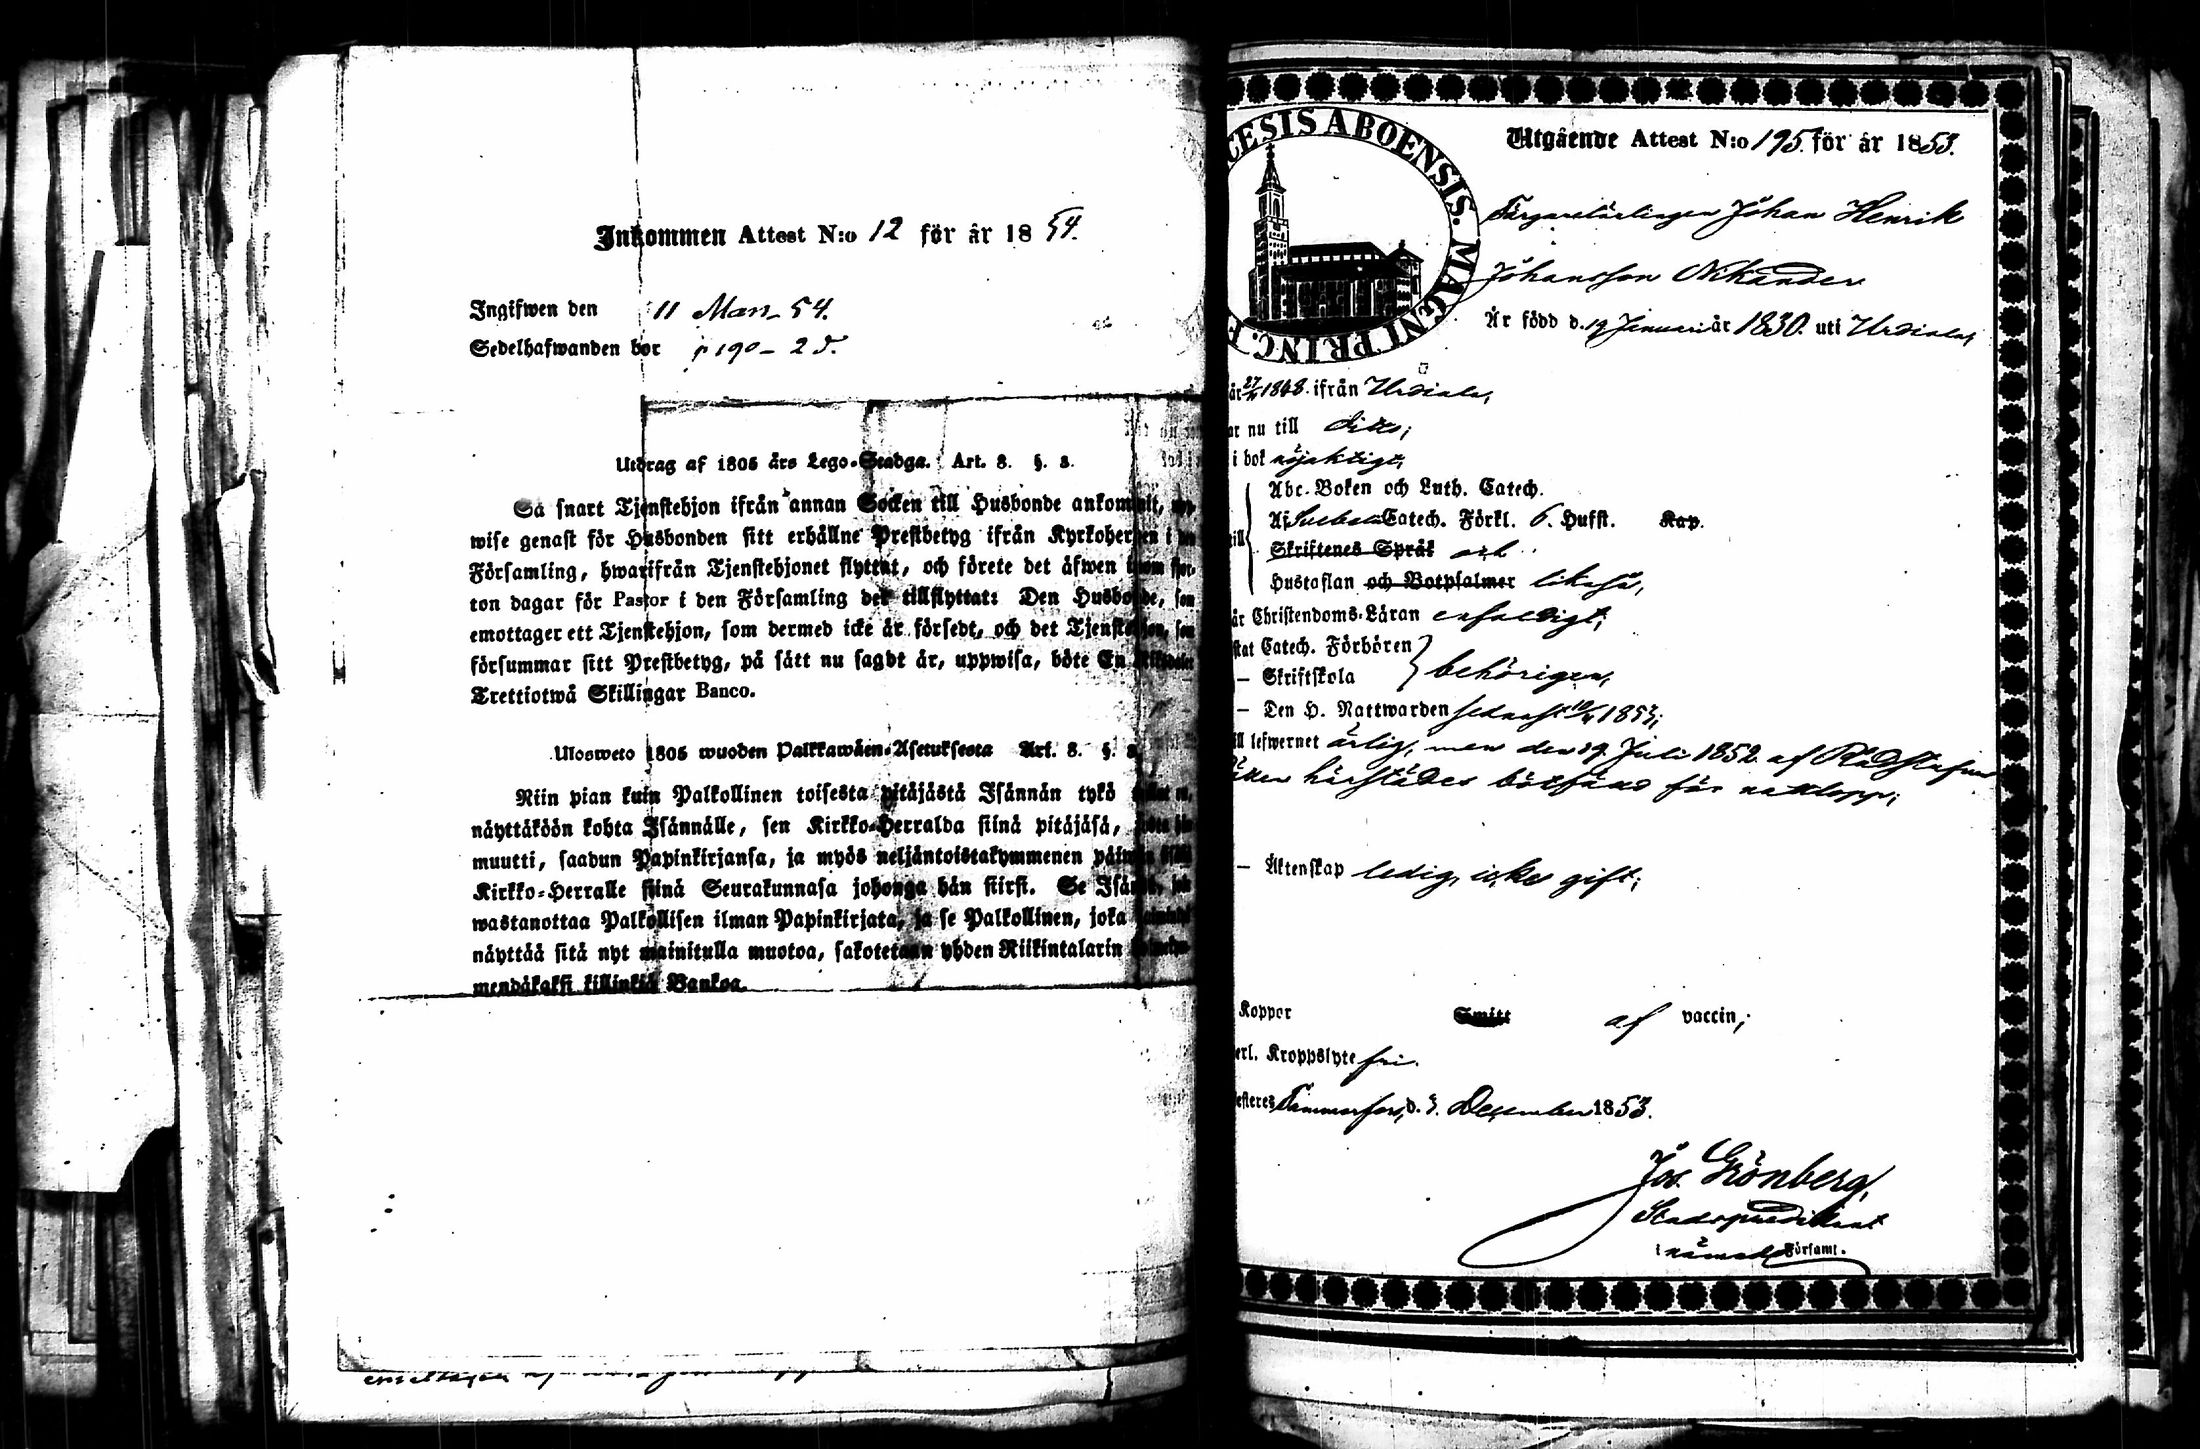 Inkommen Attest N:o 12 för år 1854.
Ingifwen den 11 Mars 54.
Sedelhafwanden bor p 190 – 2 d.
Utdrag af 1805 års Lego-Stadga. Art. 8. §. 2.
Så snart Tjenstehjon ifrån annan Socken till Husbonde ankommit,
wise genast för Husbonden sitt erhållne Prestbetyg ifrån Kyrkoherren i
Församling, hwarifrån Tjenstehjonet flyttat, och förete det äfwen inom fjor-
ton dagar för Pastor i den Församling det tillflyttat: Den Husbonde, som
emottager ett Tjenstehjon, som dermed icke är försedt, och det Tjenstehjon, som
försummar sitt Prestbetyg, på sätt nu sagdt är, uppwisa, böte En Riksdaler
Trettiotwå Skillingar Banco.
Ulosweto 1805 wuoden Palkkawäen-Asetuksesta Art. 8. §.
Niin pian kuin Palkollinen toisesta pitäjästä Isännän tykö
näyttäköön kohta Isännälle, sen Kirkko-Herralda siinä pitäjäsä,
muutti, saadun Papinkirjansa, ja myös neljäntoistakymmenen päiwän
Kirkko-Herralle siinä Seurakunnasa johonga hän siirsi. Se Isändä, joka
wastanottaa Palkollisen ilman Papinkirjata, ja se Palkollinen, joka
näyttää sitä nyt mainitulla muotoa, sakotetaan yhden Riikintalarin
mendäkaksi killinkiä Bankoa.
CESIS ABOENSIS. MAGNI PRINC. F
Utgående Attest N:o 195. för år 1853.
Färgarelärlingen Johan Henrik
Johansson Nikander
Är född d. 19 Januari år 1830. uti Urdiala,
år 27/ 1848. ifrån Urdiala,
ar nu till dito;
i bok nöjaktigt,
Abc-Boken och Luth. Catech.
Aj Catech. Förkl. 6. Hufst. Kap.
Skriftenes Språk och
Hustaflan och Botpsalmer likaså,
är Christendoms-Läran enfaldigt;
stat Catech. Förhören
– Skriftskola behörigen,
– Den H. Nattwarden sednast 1853;
ill lefwernet ärlig, men den 19 Juli 1852 af Rådstufwu
Rätten härstädes bötfäld för nattlopp;
– Äktenskap ledig, icke gift;
Koppor Smitt af vaccin,
erl. Kroppslyte fri.
esteres Tammerfors, d. 3. December 1853.
Jos. Grönberg,
Stadspredikant
i nämnde Församl.